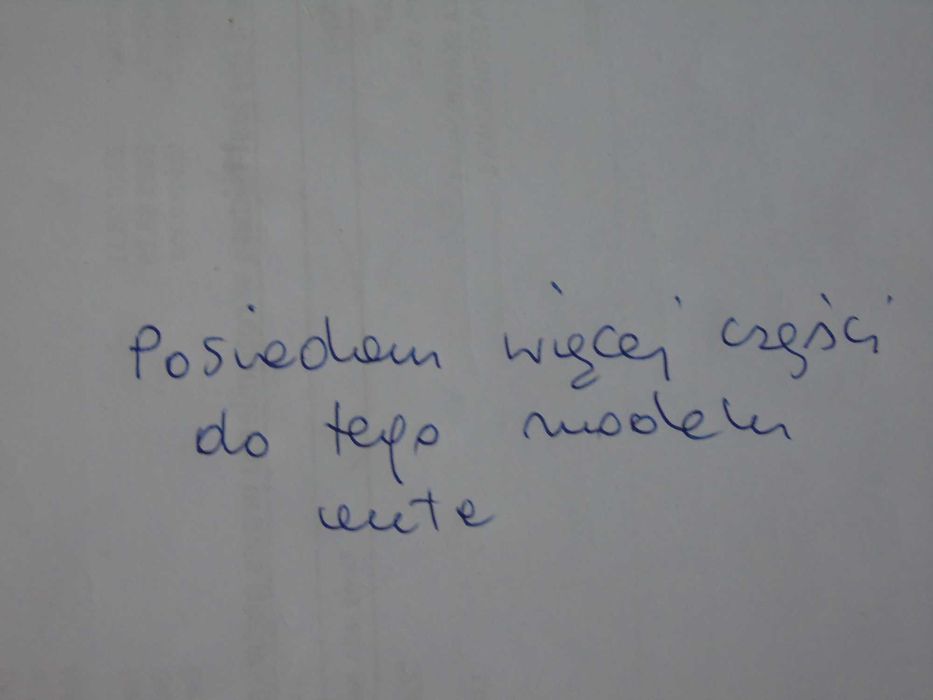 Posiadam więcej części
do tego modelu
auta